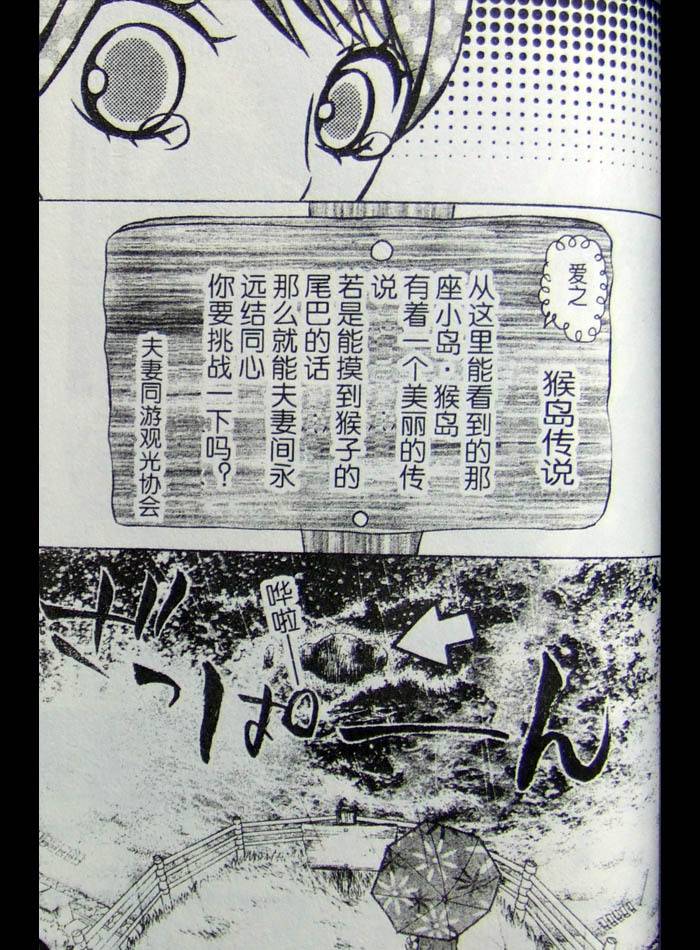 爱之
猴岛传说
从这里能看到的那
座小岛·猴岛
有着一个美丽的传
说……
若是能摸到猴子的
尾巴的话……
那么就能夫妻间永
远结同心
你要挑战一下吗？
夫妻同游观光协会
哗啦——
ざっぱーん